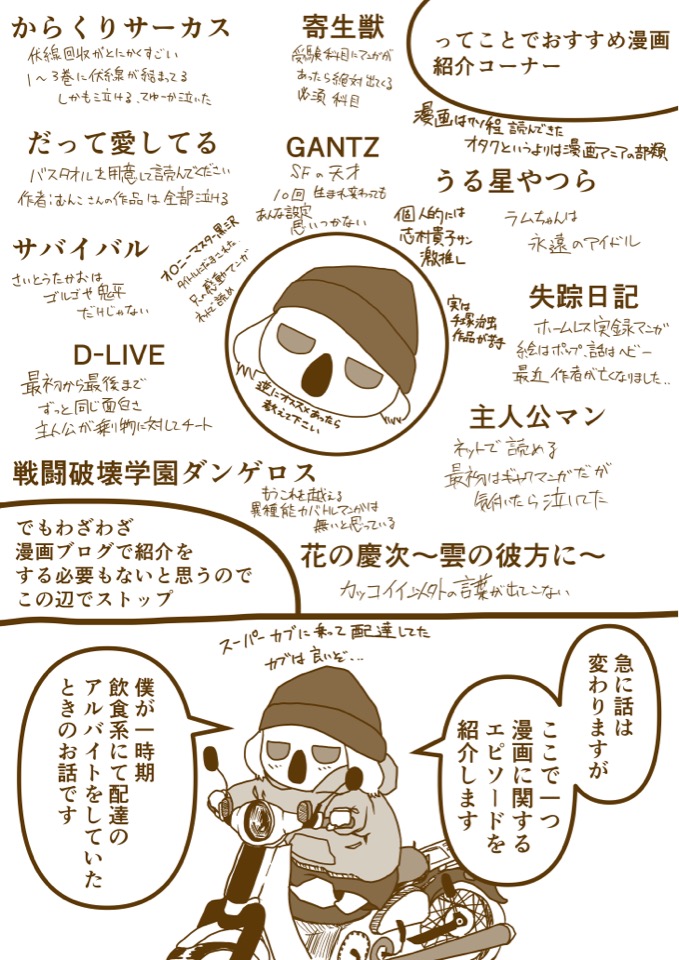 ってことでおすすめ漫画
紹介コーナー
漫画はソソ程読んできた
オタクというよりは漫画マニアの部類
寄生獣
受験科目にマンガが
あったら絶対出てくる
必須科目
からくりサーカス
伏線回収がとにかくすごい
1〜3巻に伏線が組まってる
しかも泣ける、てゆーか泣いた
GANTZ
SFの天才
10回生まれ変わっても
あんな設定
思いつかない
だって愛してる
バスタオルを用意して読んでください
作者:むんこさんの作品は全部泣ける
うる星やつら
ラムちゃんは
永遠のアイドル
個人的には
志村貴子サン
激推し
オロニーマスター黒沢
タイトルにだまされた
只の感動マンガ
ネットで読め
サバイバル
さいとうたかおは
ゴルゴや鬼平
だけじゃない
失踪日記
ホームレス実録マンガ
絵はポップ、話はヘビー
最近作者が亡くなりました..
実は
手塚治虫
作品が苦手
D-LIVE
最初から最後まで
ずっと同じ面白さ
主人公が乗り物に対してチート
逆にオススメあったら
教えて下さい
主人公マン
ネットで読める
最初はギャグマンガだが
気付いたら泣いてた
戦闘破壊学園ダンゲロス
もうこれを越える
異種能力バトルマンガは
無いと思っている
花の慶次〜雲の彼方に〜
カッコイイ以外の言葉が出てこない
でもわざわざ
漫画ブログで紹介を
する必要もないと思うので
この辺でストップ
急に話は
変わりますが
ここで一つ
漫画に関する
エピソードを
紹介します
スーパーカブに乗って配達してた
カブは良いぞ...
僕が一時期
飲食系にて配達の
アルバイトをしていた
ときのお話です